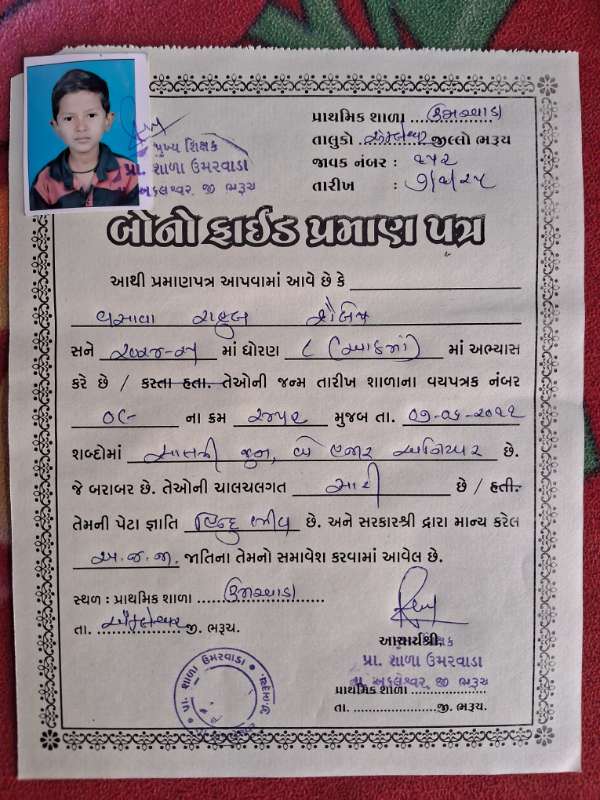 પ્રાથમિક શાળા ઉમરવાડા
તાલુકો અંકલેશ્વર જીલ્લો ભરૂચ
જાવક નંબર :
તારીખ :
મુખ્ય શિક્ષક
પ્રા. શાળા ઉમરવાડા
તા. અંકલેશ્વર. જી ભરૂચ
બોનોફાઈડ પ્રમાણ પત્ર
આથી પ્રમાણપત્ર આપવામાં આવે છે કે
વસાવા રાહુલ
સને ૨૦૨૪-૨૫ માં ધોરણ ૮ (આઠમાં) માં અભ્યાસ
કરે છે / કરતા હતા. તેઓની જન્મ તારીખ શાળાના વયપત્રક નંબર
૦૯ ના ક્રમ ૨૪૫૨ મુજબ તા. ૦૭-૦૬-૨૦૧૧
શબ્દોમાં સાતમી જુન, બે હજાર અગિયાર છે.
જે બરાબર છે. તેઓની ચાલચલગત સારી છે / હતી.
તેમની પેટા જ્ઞાતિ હિન્દુ ભીલ છે. અને સરકારશ્રી દ્વારા માન્ય કરેલ
અ.જ.જા. જાતિના તેમનો સમાવેશ કરવામાં આવેલ છે.
સ્થળ : પ્રાથમિક શાળા ઉમરવાડા
તા. અંકલેશ્વર જી. ભરૂચ.
આચાર્યશ્રી
શિક્ષક
પ્રા. શાળા ઉમરવાડા
તા. અંકલેશ્વર. જી ભરૂચ
પ્રાથમિક શાળા
તા. જી. ભરૂચ.
પ્રા. શાળા ઉમરવાડા